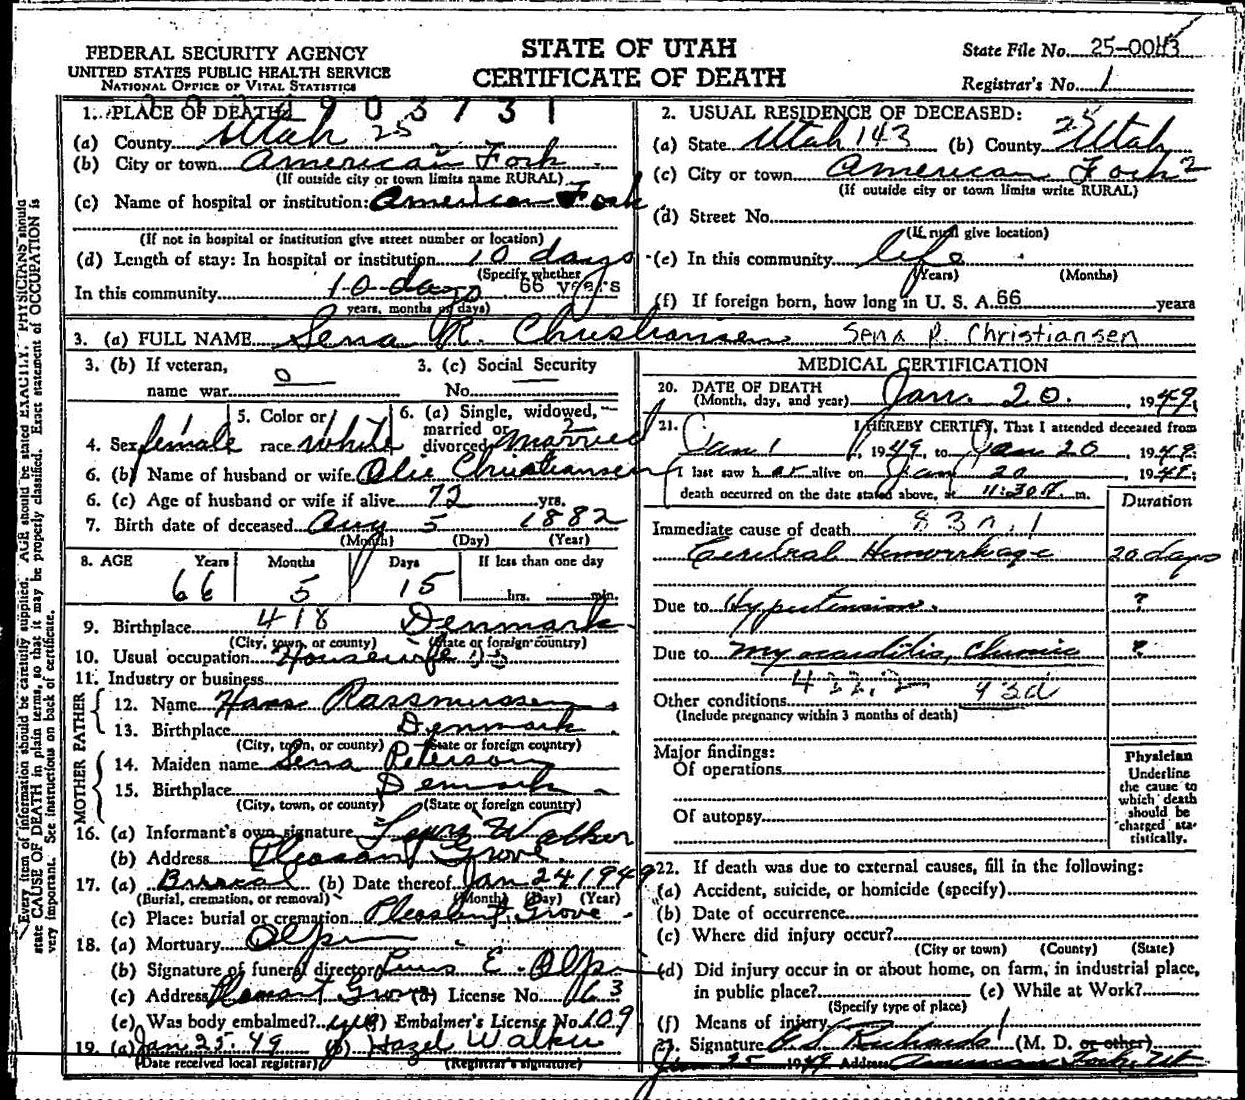 FEDERAL SECURITY AGENCY
UNITED STATES PUBLIC HEALTH SERVICE
NATIONAL OFFICE OF VITAL STATISTICS
STATE OF UTAH
CERTIFICATE OF DEATH
State File No. 25-0043
Registrar's No. 1
1. PLACE OF DEATH: 903731
(a) County Utah 25
(b) City or town American Fork
(If outside city or town limits name RURAL)
(c) Name of hospital or institution: American Fork
(If not in hospital or institution give street number or location)
(d) Length of stay: In hospital or institution 10 days
(Specify whether
In this community 10 days 66 years
years, months or days)
2. USUAL RESIDENCE OF DECEASED:
(a) State Utah 143 (b) County 25 Utah
(c) City or town American Fork 2
(If outside city or town limits write RURAL)
(d) Street No.
(If rural give location)
(e) In this community life
(Years) (Months)
(f) If foreign born, how long in U. S. A. 66 years
3. (a) FULL NAME Sena R. Christiansen Sena R. Christiansen
3. (b) If veteran,
name war 0
3. (c) Social Security
No.
4. Sex female
5. Color or
race white
6. (a) Single, widowed,
married or
divorced married 2
6. (b) Name of husband or wife Olie Christiansen
6. (c) Age of husband or wife if alive 72 yrs.
7. Birth date of deceased Aug 5 1882
(Month) (Day) (Year)
8. AGE Years Months Days If less than one day
66 5 15 hrs. min.
9. Birthplace 418 Denmark
(City, town, or county) (State or foreign country)
10. Usual occupation Housewife
11. Industry or business
FATHER
12. Name Hans Rassmussen
13. Birthplace Denmark
(City, town, or county) (State or foreign country)
MOTHER
14. Maiden name Sena Peterson
15. Birthplace Denmark
(City, town, or county) (State or foreign country)
16. (a) Informant's own signature Walker
(b) Address Pleasant Grove
17. (a) Burial (b) Date thereof Jan 24 1949
(Burial, cremation, or removal) (Month) (Day) (Year)
(c) Place: burial or cremation Pleasant Grove
18. (a) Mortuary Olpin
(b) Signature of funeral director E. Olpin
(c) Address Pleasant Grove (d) License No. 163
(e) Was body embalmed? yes (f) Embalmer's License No. 109
19. (a) Jan 25. 49 (b) Hazel Walker
(Date received local registrar) (Registrar's signature)
MEDICAL CERTIFICATION
20. DATE OF DEATH
(Month, day, and year) Jan. 20. 1949.
21. I HEREBY CERTIFY, That I attended deceased from
Jan 1, 1949, to Jan 20 1949;
I last saw her alive on Jan 20 1949;
death occurred on the date stated above, at 11:30 m.
Duration
Immediate cause of death 83
Cerebral Hemorrhage 20 days
Due to Hypertension. ?
Due to Myocarditis, Chronic ?
422.2 93d
Other conditions
(Include pregnancy within 3 months of death)
Major findings:
Of operations
Of autopsy
Physician
Underline
the cause to
which death
should be
charged sta-
tistically.
22. If death was due to external causes, fill in the following:
(a) Accident, suicide, or homicide (specify)
(b) Date of occurrence
(c) Where did injury occur?
(City or town) (County) (State)
(d) Did injury occur in or about home, on farm, in industrial place,
in public place? (e) While at Work?
(Specify type of place)
(f) Means of injury
23. Signature Richards (M. D. or other)
Jan 25 1949 Address American Fork, Ut
Every item of information should be carefully supplied. AGE should be stated EXACTLY. PHYSICIANS should
state CAUSE OF DEATH in plain terms, so that it may be properly classified. Exact statement of OCCUPATION is
very important. See instructions on back of certificate.